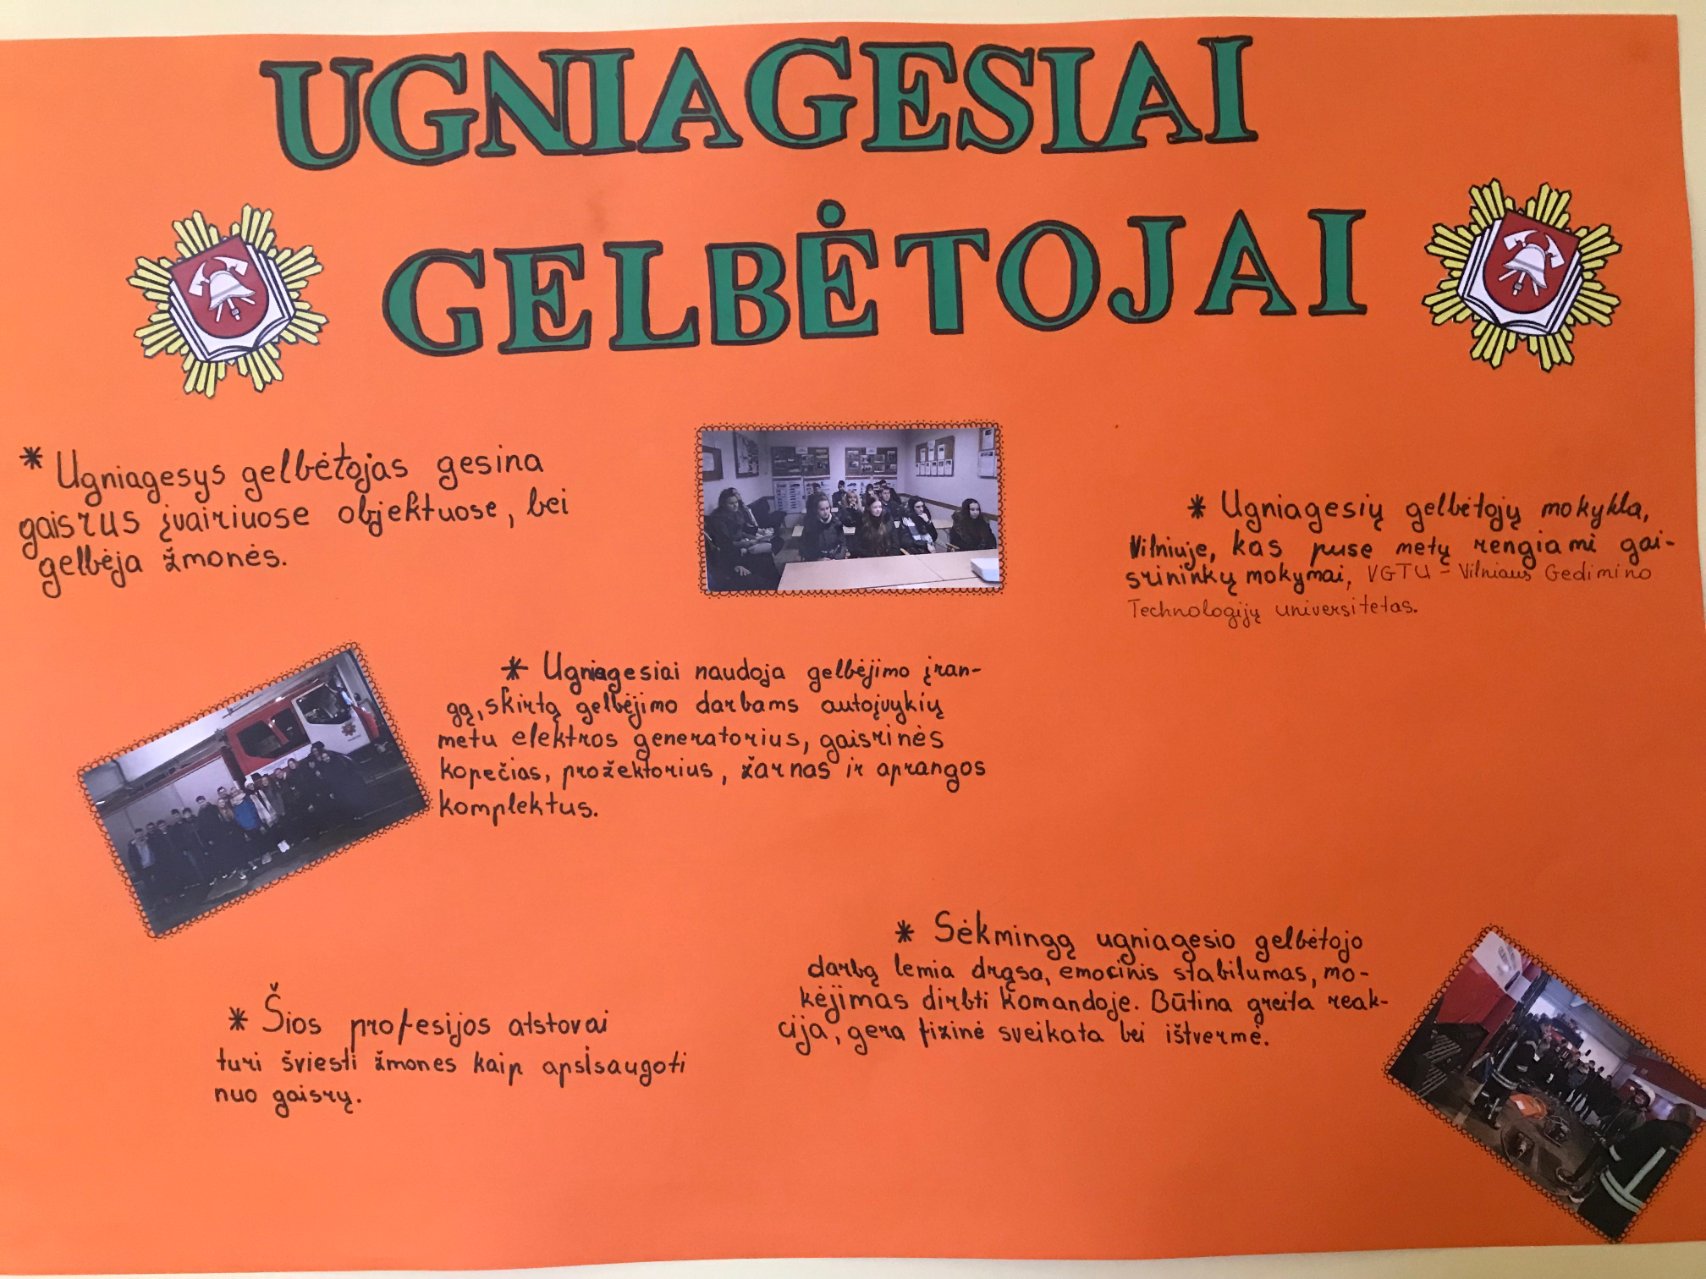 UGNIAGESIAI
GELBĖTOJAI
* Ugniagesys gelbėtojas gesina
gaisrus įvairiuose objektuose, bei
gelbėja žmonės.
* Ugniagesių gelbėtojų mokykla,
Vilniuje, kas pusę metų rengiami gai-
srininkų mokymai, VGTU - Vilniaus Gedimino
Technologijų universitetas.
* Ugniagesiai naudoja gelbėjimo įran-
gą, skirtą gelbėjimo darbams autoįvykių
metu elektros generatorius, gaisrinės
kopečias, prožektorius, žarnas ir aprangos
komplektus.
* Sėkmingą ugniagesio gelbėtojo
darbą lemia drąsa, emocinis stabilumas, mo-
kėjimas dirbti komandoje. Būtina greita reak-
cija, gera fizinė sveikata bei ištvermė.
* Šios profesijos atstovai
turi šviesti žmones kaip apsisaugoti
nuo gaisrų.